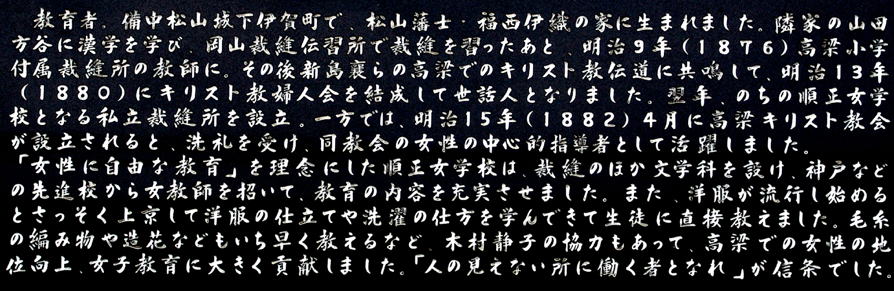 教育者。備中松山城下伊賀町で、松山藩士・福西伊織の家に生まれました。隣家の山田
方谷に漢学を学び、岡山裁縫伝習所で裁縫を習ったあと、明治9年(1876)高梁小学
付属裁縫所の教師に。その後新島襄らの高梁でのキリスト教伝道に共鳴して、明治13年
(1880)にキリスト教婦人会を結成して世話人となりました。翌年、のちの順正女学
校となる私立裁縫所を設立。一方では、明治15年(1882)4月に高梁キリスト教会
が設立されると、洗礼を受け、同教会の女性の中心的指導者として活躍しました。
「女性に自由な教育」を理念にした順正女学校は、裁縫のほか文学科を設け、神戸など
の先進校から女教師を招いて、教育の内容を充実させました。また、洋服が流行し始める
とさっそく上京して洋服の仕立てや洗濯の仕方を学んできて生徒に直接教えました。毛糸
の編み物や造花などもいち早く教えるなど、木村静子の協力もあって、高梁での女性の地
位向上、女子教育に大きく貢献しました。「人の見えない所に働く者となれ」が信条でした。